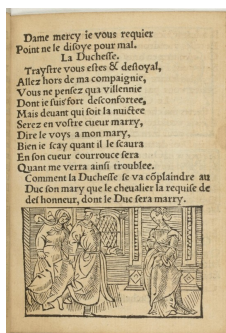 Dame mercy ie vous requier
Point ne le disoye pour mal.
La Duchesse.
Traystre vous estes & desloyal,
Allez hors de ma compaignie,
Vous ne pensez qua villennie
Dont ie suis fort desconfortee,
Mais deuant qui soit la nuictee
Serez en vostre cueur marry,
Dire le voys a mon mary,
Bien ie scay quant il le scaura
En son cueur courrouce sera
Quant me verra ainsi troublee.
Comment la Duchesse se va cõplaindre au
Duc son mary que le cheualier la requise de
des honneur, dont le Duc sera marry.